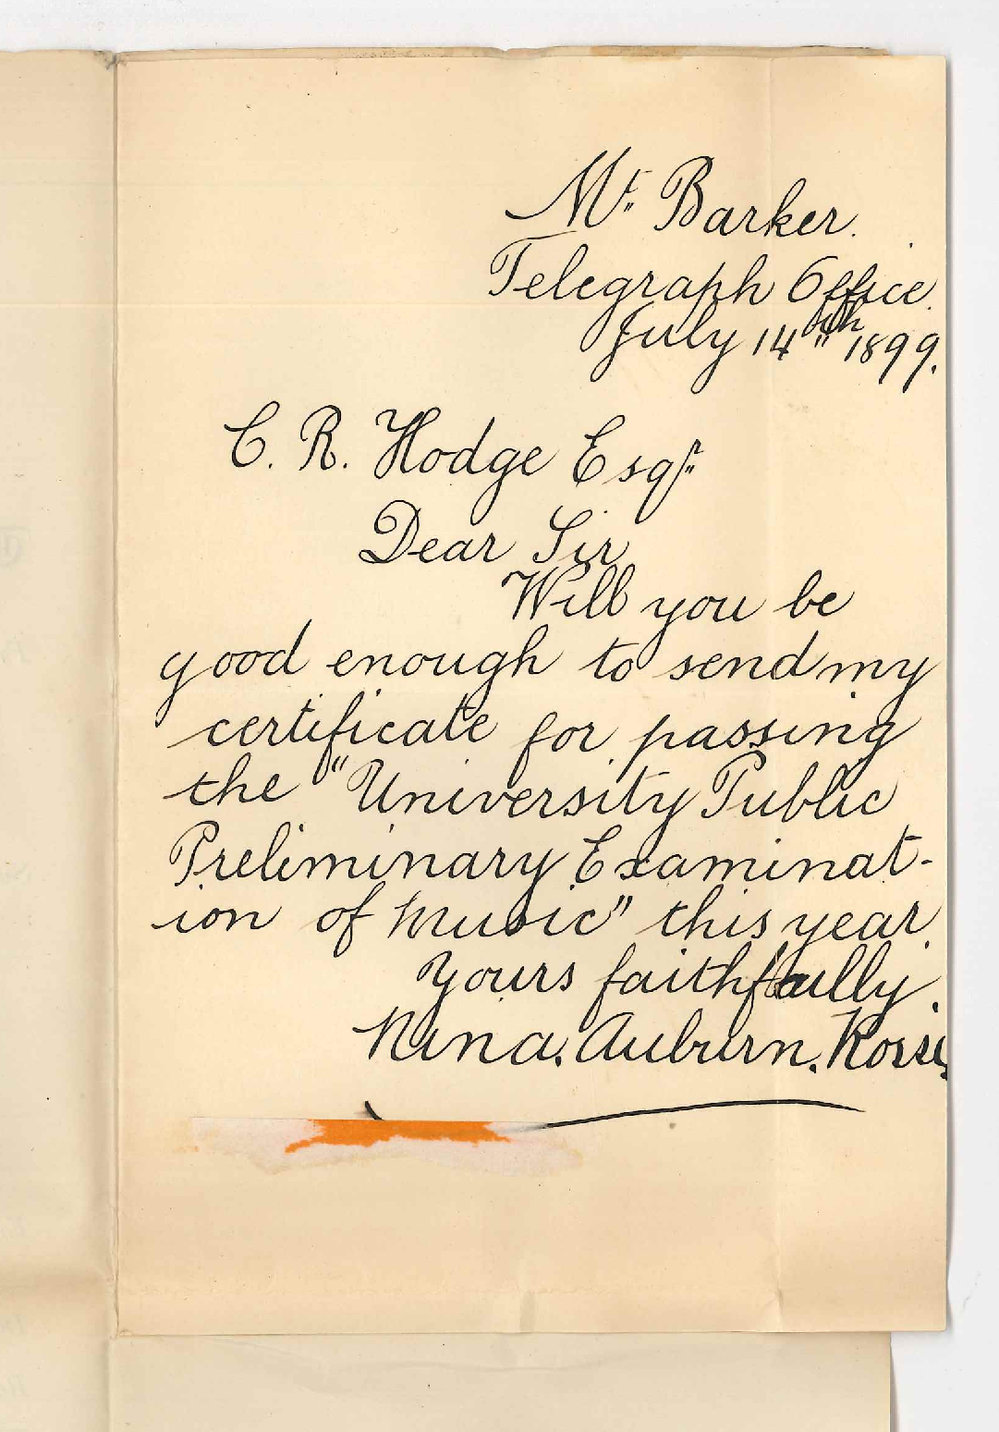 Mt. Barker.
Telegraph Office.
July 14th 1899.
C. R. Hodge Esqr.
Dear Sir
Will you be
good enough to send my
certificate for passing
the "University Public
Preliminary Examinat-
ion of Music" this year.
Yours faithfully.
Nina. Auburn.